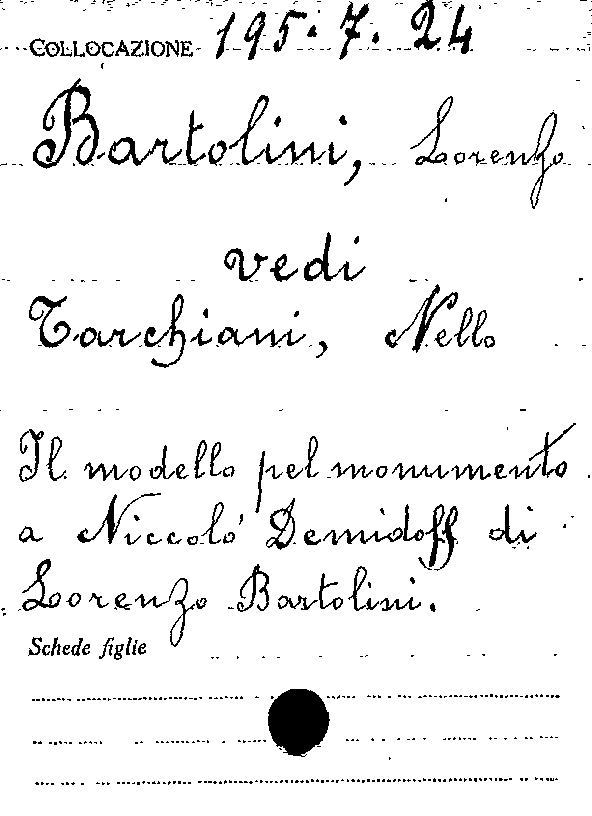 COLLOCAZIONE 195.7.24
Bartolini, Lorenzo
vedi
Tarchiani, Nello
Il modello pel monumento
a Niccolò Demidoff di
Lorenzo Bartolini.
Schede figlie